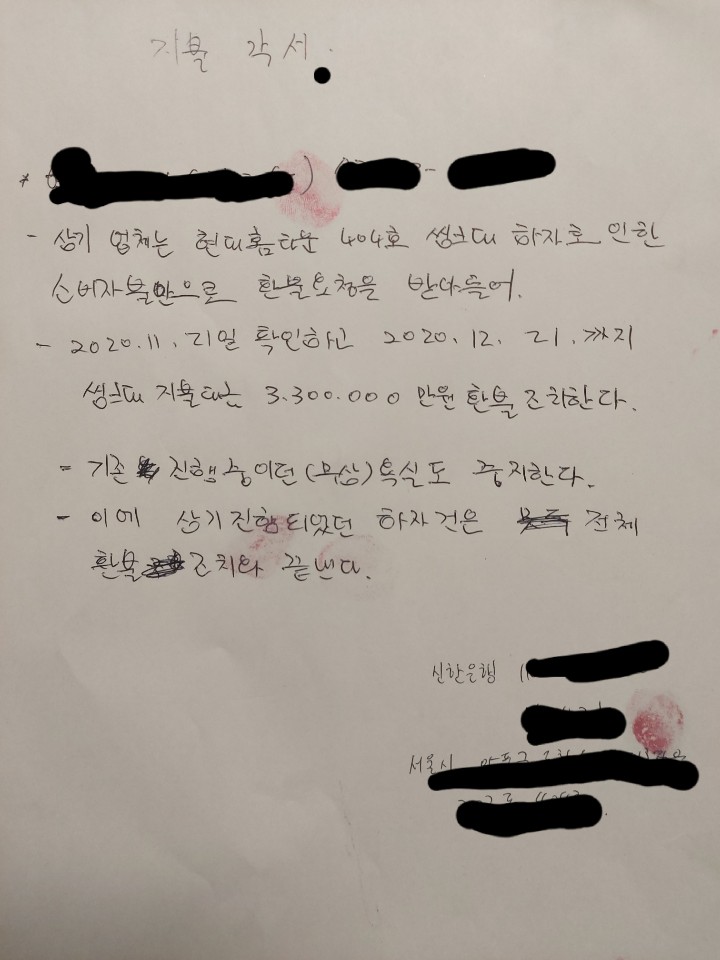 지불 각서.
- 상기 업체는 현대홈타운 404호 씽크대 하자로 인한
소비자불만으로 환불요청을 받아들여.
- 2020.11.21일 확인하고 2020.12.21.까지
씽크대 지불대금 3.300.000 만원 환불 조치한다.
- 기존 진행중이던 (무상) 욕실도 중지한다.
- 이에 상기 진행되었던 하자건은 전체
환불 조치와 끝낸다.
신한은행
서울시